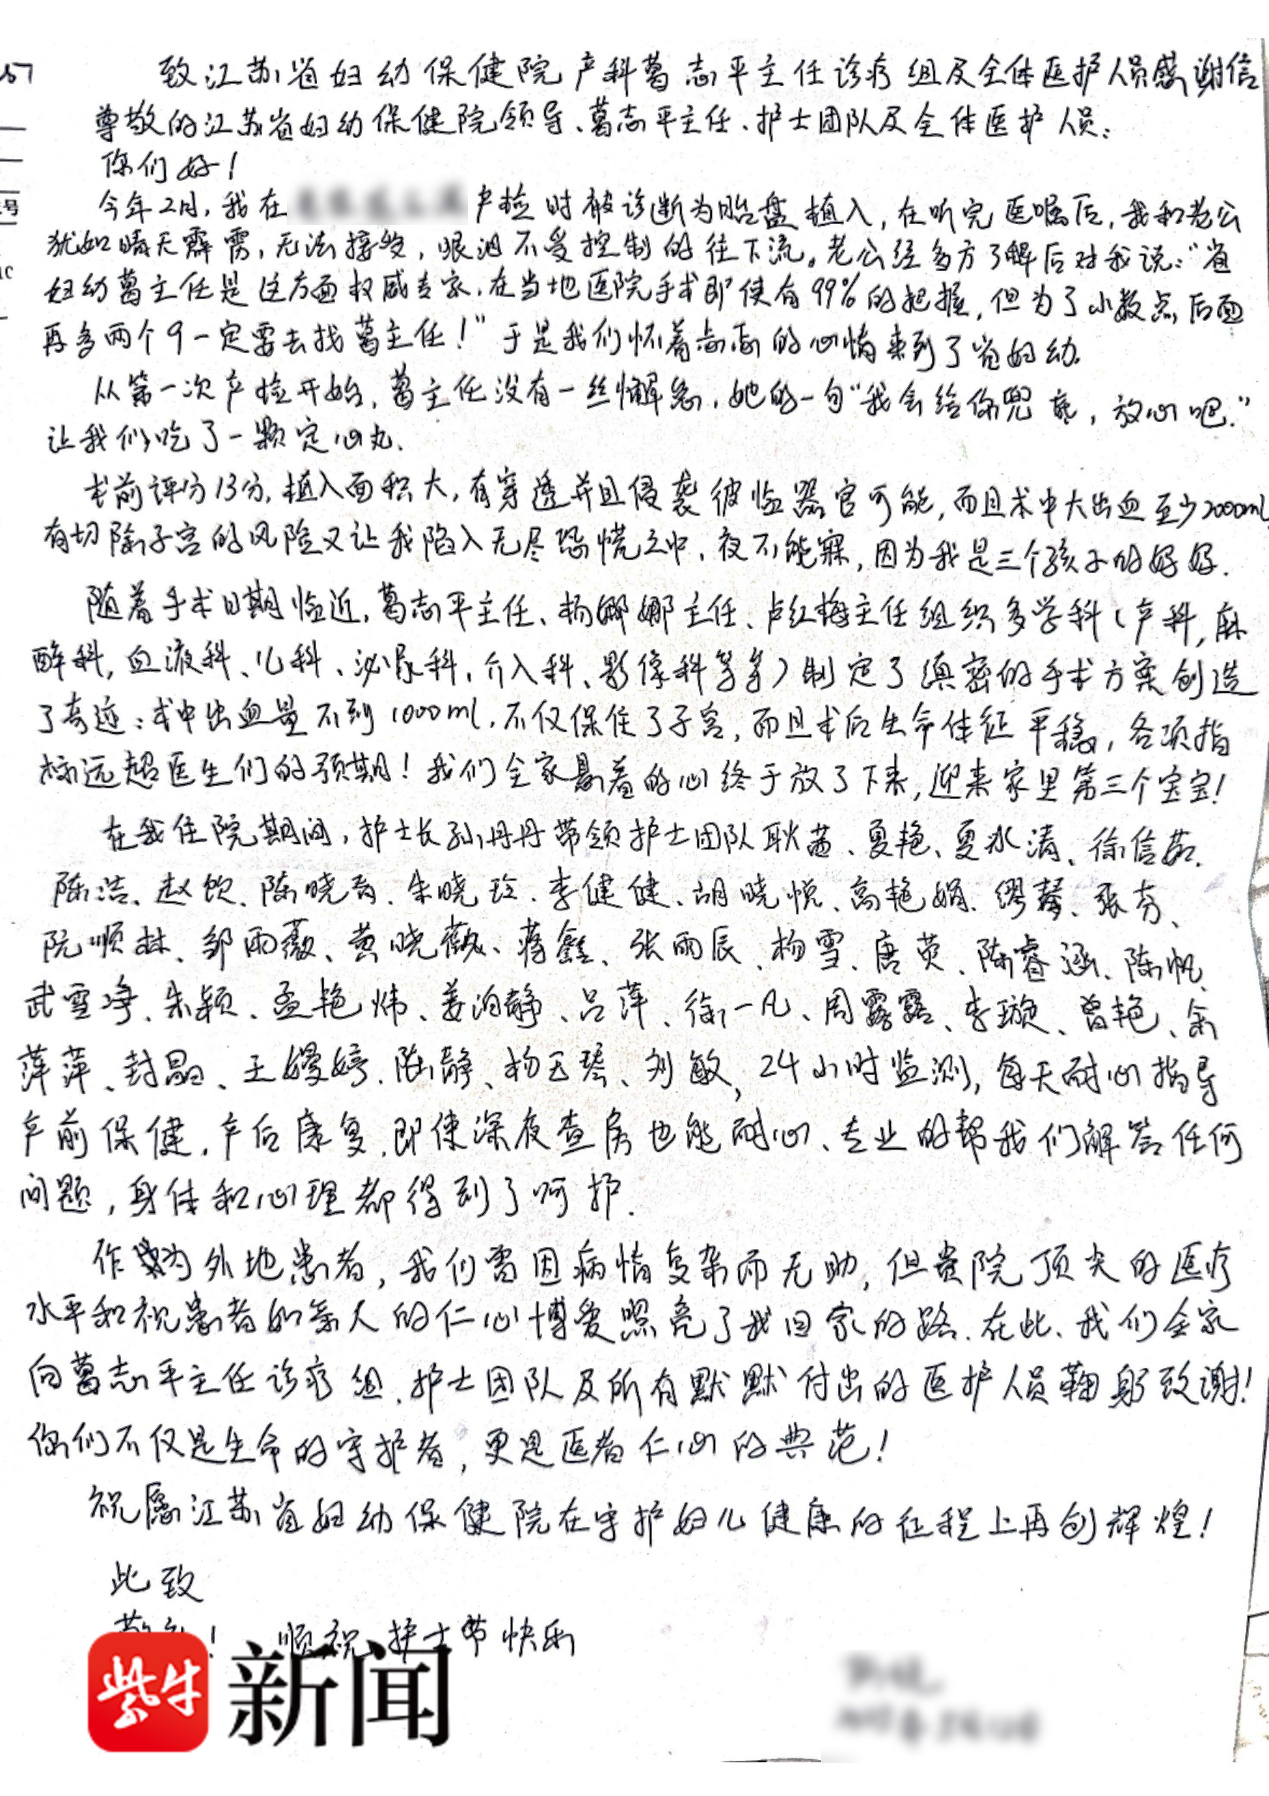 致江苏省妇幼保健院产科葛志平主任诊疗组及全体医护人员感谢信
尊敬的江苏省妇幼保健院领导、葛志平主任、护士团队及全体医护人员:
你们好!
今年2月,我在 产检时被诊断为胎盘植入,在听完医嘱后,我和老公
犹如晴天霹雳,无法接受,眼泪不受控制的往下流。老公经多方了解后对我说:"省
妇幼葛主任是这方面权威专家,在当地医院手术即使有99%的把握,但为了小数点后面
再多两个9一定要去找葛主任!"于是我们怀着忐忑的心情来到了省妇幼.
从第一次产检开始,葛主任没有一丝懈怠,她的一句"我会给你兜底,放心吧."
让我们吃了一颗定心丸.
术前评分13分,植入面积大,有穿透并且侵袭彼临器官可能,而且术中大出血至少2000ml,
有切除子宫的风险又让我陷入无尽恐慌之中,夜不能寐,因为我是三个孩子的妈妈.
随着手术日期临近,葛志平主任、杨娜娜主任、卢红梅主任组织多学科(产科,麻
醉科,血液科、儿科、泌尿科,介入科、影像科等等)制定了缜密的手术方案创造
了奇迹:术中出血量不到1000ml,不仅保住了子宫,而且术后生命体征平稳,各项指
标远超医生们的预期!我们全家悬着的心终于放了下来,迎来家里第三个宝宝!
在我住院期间,护士长孙丹丹带领护士团队耿茜、夏艳、夏水清、徐信茹.
陈浩、赵饮、陈晓 、朱晓玲、李健健、胡晓悦、高艳娟、缪馨、张芬、
阮顺林、邹雨薇、黄晓薇、蒋鑫、张雨辰、杨雪、唐英、陈睿涵、陈帆、
武雪峥、朱颖、孟艳炜、姜泊静、吕萍、徐一凡、周露露、李璇、曾艳、余
萍萍、封晶、王嫚婷、陈静、杨玉琴、刘敏,24小时监测,每天耐心指导
产前保健,产后康复,即使深夜查房也能耐心、专业的帮我们解答任何
问题,身体和心理都得到了呵护.
作为外地患者,我们曾因病情复杂而无助,但贵院顶尖的医疗
水平和视患者如亲人的仁心博爱照亮了我回家的路.在此、我们全家
向葛志平主任诊疗组,护士团队及所有默默付出的医护人员鞠躬致谢!
你们不仅是生命的守护者,更是医者仁心的典范!
祝愿江苏省妇幼保健院在守护妇儿健康的征程上再创辉煌!
此致
敬礼! 顺祝护士节快乐
紫牛新闻